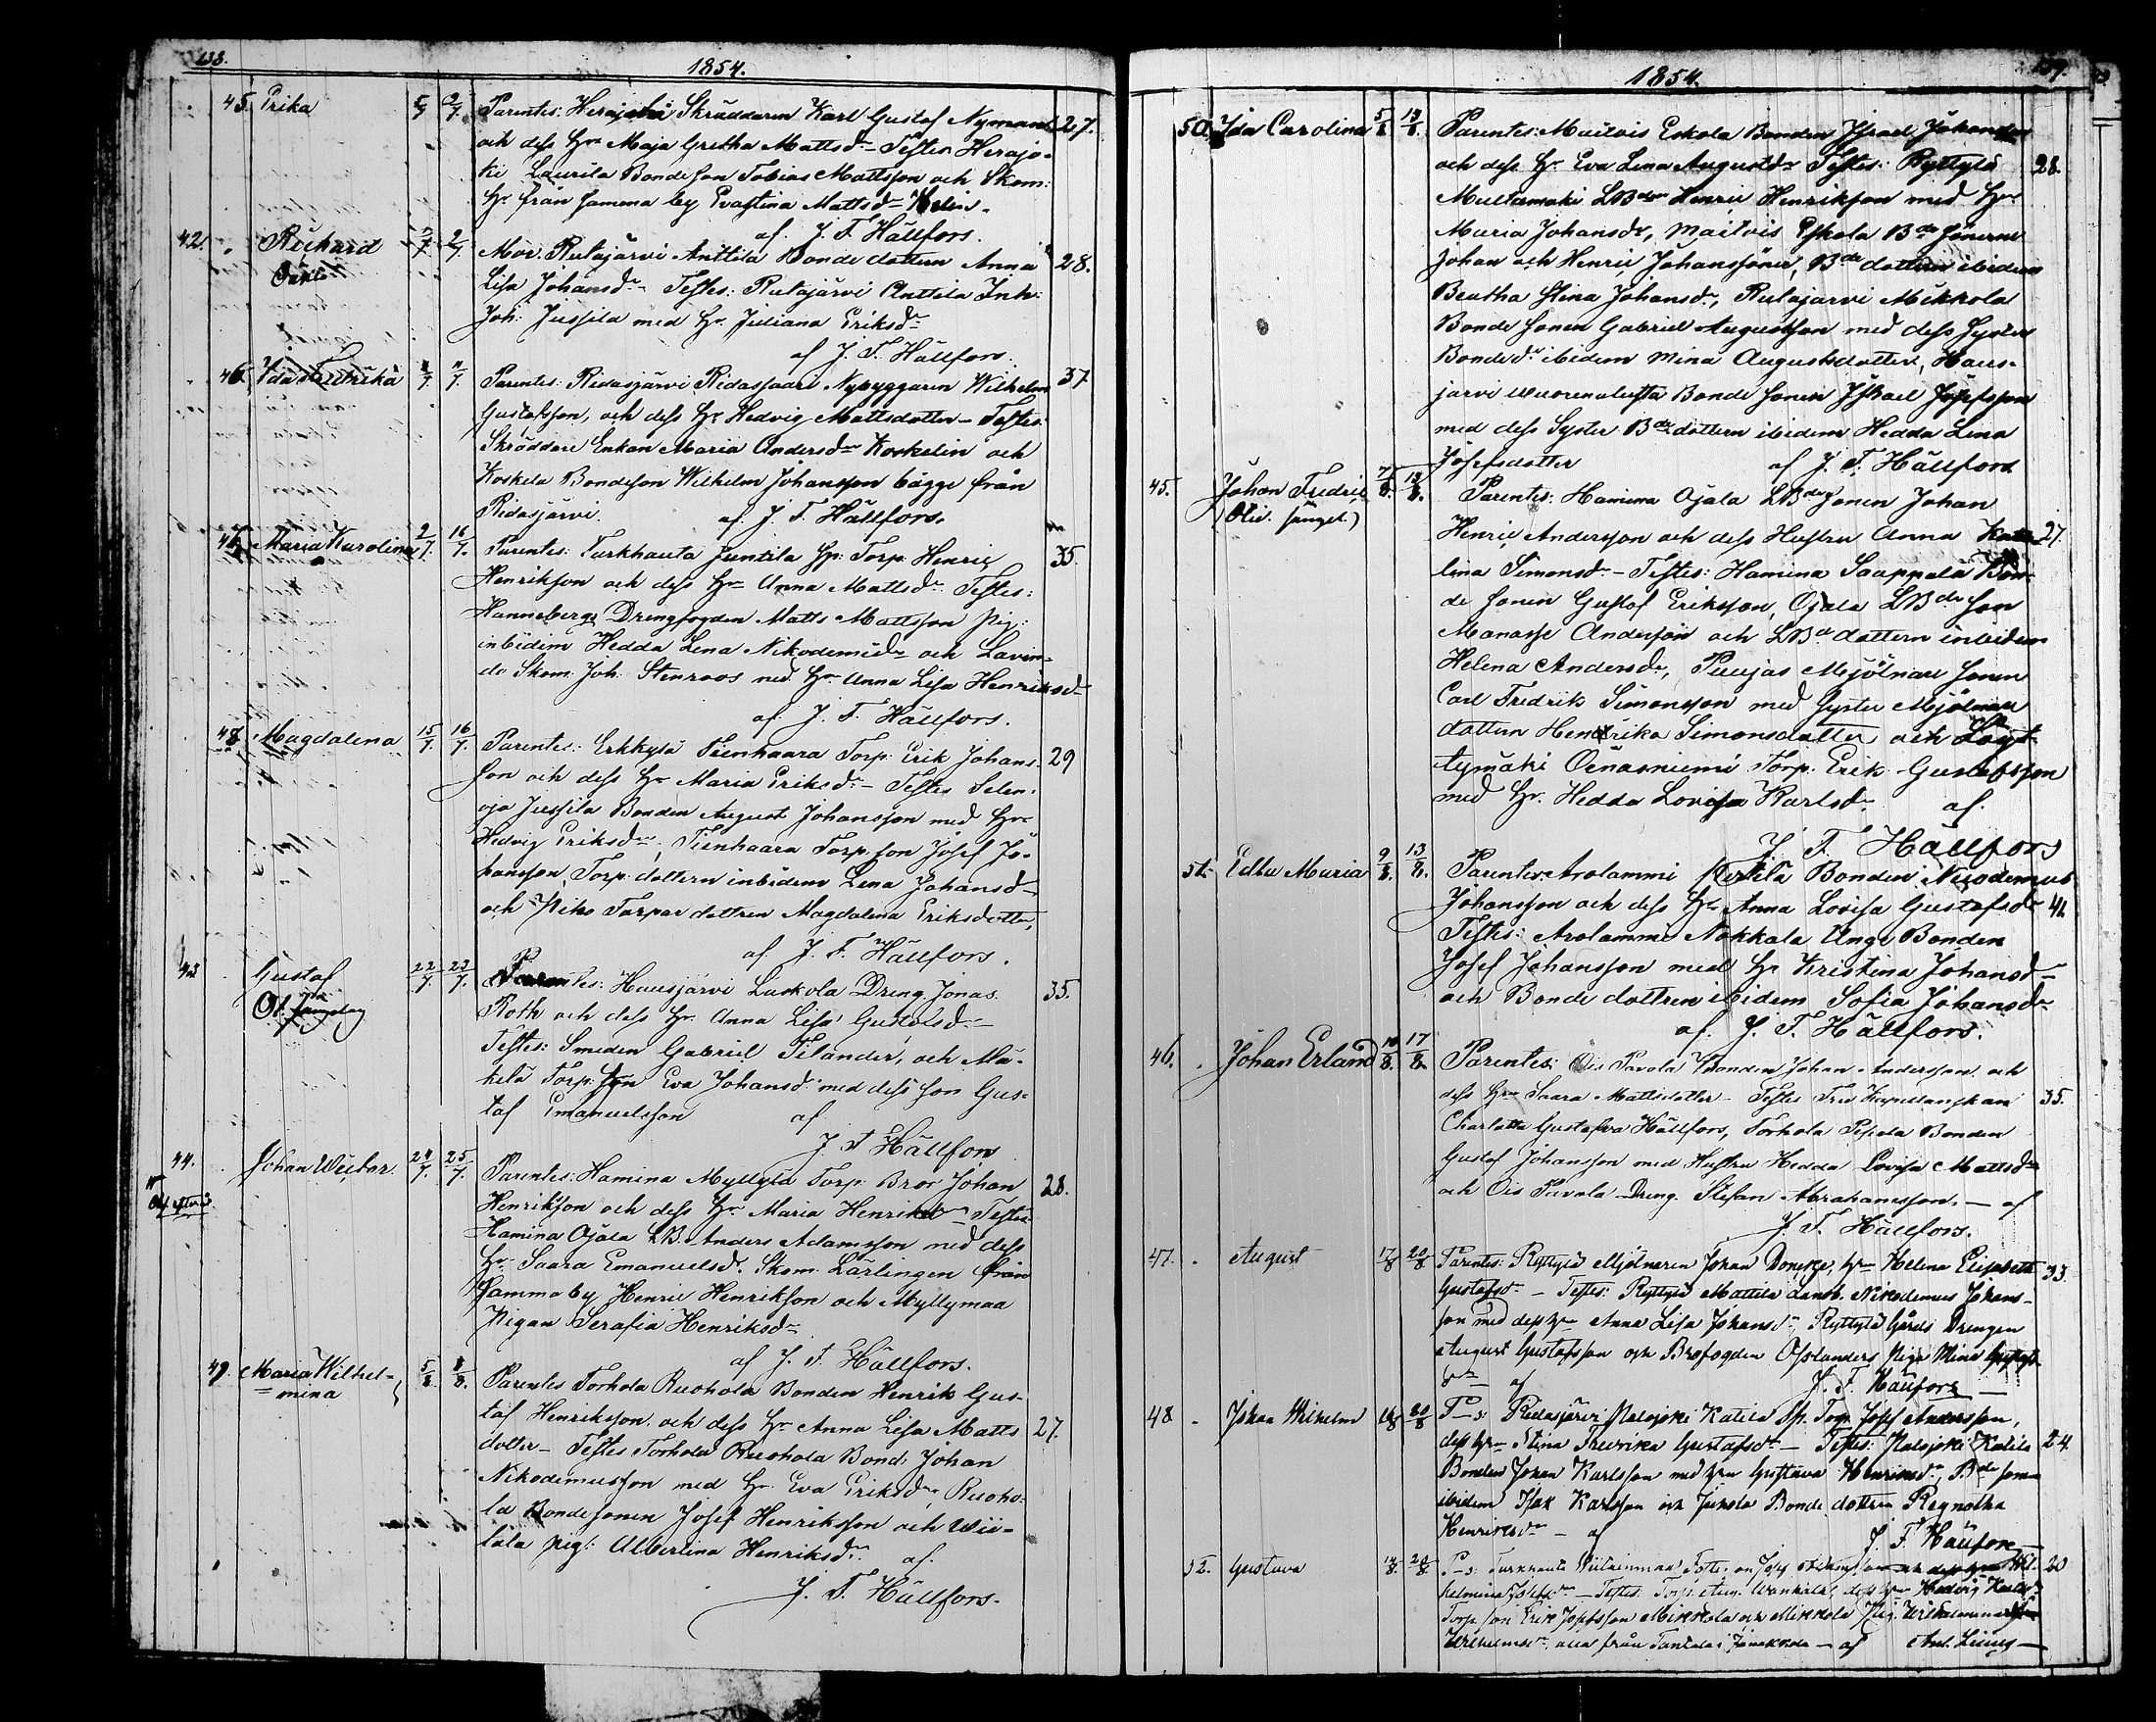 138.
1854.
45. Erika 5/7 9/7 Parentes: Herajoki Skräddaren Karl Gustaf Nyman 27.
och dess Hr Maja Gretha Mattsdr – Testes Herajo-
ki Laurila Bondeson Tobias Mattsson och Skom:
Hr från samma by Evastina Mattsdr
af J. F. Hällfors.
42. Richard 2/7 Mod. Rutajärvi Anttila Bondedottern Anna 28.
Lisa Johansdr Testes: Rutajärvi Anttila Inh:
Joh: Jussila med Hr. Juliana Eriksdr
af J. F. Hällfors.
46. Ida Fredrika Parentes: Ridasjärvi Nybyggaren Wilhelm 37
Gustafsson, och dess Hr Hedvig Mattsdotter – Testes:
Skräddare Enkan Maria Andersdr Korkelin och
Koskela Bondeson Wilhelm Johansson bägge från
Ridasjärvi. af J. F. Hällfors.
Maria Karolina 2/7 16/7 Parentes: Turkhauta Juntila Sp: Torp: Henric 35.
Henrikson och dess Hr Anna Mattsdr Testes:
Hanneberga Drengfogden Matts Mattsson pig:
inbidem Hedda Lena Nikodemidr och Lavin-
do Skom: Joh: Stenroos med Hr Anna Lisa Henriksdr
af J. F. Hällfors.
48. Magdalena 15/7 16/7 Parentes: Erkkylä Tienhaara Torp: Erik Johans- 29
son och dess Hr Maria Eriksdr – Testes Selen-
oja Jussila Bonden August Johansson med Hr
Hedvig Eriksdr, Tienhaara Torp: son Josef Jo-
hansson, Torp: dottern inbidem Lena Johansdr
och Torpar dottren Magdalena Eriksdotter,
af J. F. Hällfors.
43 Gustaf 22/7 23/7 Parentes: Hausjärvi Laskola Dreng Jonas 35.
Roth och dess Hr. Anna Lisa Gustafsdr –
Testes: Smeden Gabriel Tilander, och Mä-
kelä Torp: Eva Johansdr med dess son Gus-
taf Emanuelsson af
J. F. Hällfors
44. Johan Wictor. 24/7 25/7 Parentes: Hamina Myllylä Torp: Bror Johan 28.
Henrikson och dess Hr Maria Henriksdr – Testes
Hamina Ojala LB. Anders Adamsson med dess
Hr Saara Emanuelsdr. Skom: Lärlingen från
samma by Henric Henrikson och Myllymaa
Pigan Serafia Henriksdr
af J. F. Hällfors.
49. Maria Wilhel- 5/8 Parentes Torhola Ruohola Bonden Henrik Gus-
mina
taf Henriksson och dess Hr Anna Lisa Matts 27.
dotter – Testes Torhola Ruohola Bond: Johan
Nikodemusson med Hr Eva Eriksdr, Ruoho-
la Bondesonen Josef Henriksson och Wii-
lala pig: Albertina Henriksdr af.
J. F. Hällfors.
1854.
50. Ida Carolina 5/8 13/8 Parentes: Maitois Eskola Bonden Israel Johansson
och dess Hr. Eva Lena Augustdr Testes: Ryttylä 28.
Multamäki LBden Henric Henrikson med Hr
Maria Johansdr, Maitois Eskola Bde sönerne
Johan och Henric Johanssöner, Bde dottren ibidem
Beatha Stina Johansdr, Rutajärvi Mikkola
Bonde sonen Gabriel Augustsson med dess syster
Bondedr ibidem Mina Augustsdotter, Haus-
järvi Bonde sonen Israel Josefsson
med dess Syster Bde dottern ibidem Hedda Lena
Josefsdotter af J. F. Hällfors
45. Johan Fredric 7/8. 13/8. Parentes: Hamina Ojala LBde sonen Johan
Henric Andersson och dess Hustru Anna Kata- 27.
lina Simonsdr – Testes: Hamina Saappala Bon-
de sonen Gustof Eriksson, Ojala LBde son
Manasse Andersson och LBde dottern inbidem
Helena Andersdr, Puujas Mjölnare sonen
Carl Fredrik Simonsson med syster Mjölnare
dottern Hendrika Simonsdotter och Löyt-
tymäki Oinasniemi Torp: Erik Gustafsson
med Hr. Hedda Lovisa Karlsdr af.
J. F. Hällfors
51. Edla Maria 9/8. 13/8. Parentes Arolammi Bonden Nicodemus
Johansson och dess Hr Anna Lovisa Gustafsdr 41
Testes: Arolammi Nokkala Unge Bonden
Josef Johansson med Hr Kristina Johansdr –
och Bonde dottren ibidem Sofia Johansdr
af J. F. Hällfors.
46. Johan Erland 17/8. Parentes: Ois Pavola Bonden Johan Andersson och
dess Hr Saara Mattsdotter – Testes Fru Kapellanskan 35.
Charlotta Gustafva Hällfors, Torhola Bonden
Gustaf Johansson med Hustru Hedda Lovisa Mattsdr
och Ois Pavola Dreng Stefan Abrahamsson. – af
J. F. Hällfors.
47. August 17/8 20/8 Parentes: Ryttylä Mjölnaren Johan, Hr Helena Elisabeth 33.
Gustafsdr – Testes: Ryttylä Mattila Landb. Nikodemus Johans-
son med dess Hr Anna Lisa Johansdr, Ryttylä Gårds Drengen
August Gustafsson och Brofogden Osolanders Piga Mina
af J. F. Hällfors –
48. Johan Wilhelm 20/8 P–s: Ridasjärvi Katila Sp. Torp. Josef Andersson,
dess Hr Stina Fredrika Gustafsdr – Testes: Katila 24.
Bonden Johan Karlsson med Hr Gustava Henriksdr, Bde son
ibidem Isak Karlsson och Jukola Bonde dottren Regnotha
Henriksdr – af J. F. Hällfors
52. Gustava 20/8. P–s: Turkhauta 20
Josefsdr – Testes: Torp. Aug. dess Hr Hedvig
Torp. son Eric Josefsson Mikkola och Mikkola Pig. Wilhelmina
Wilhelmsdr, alla från Tantala i Janakkala – af